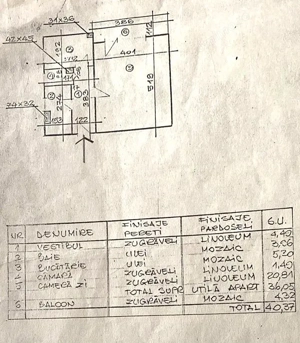 31×36
386
42×45
112
401
518
274
383
24×32
122
NR DENUMIRE FINISAJE PERETI FINISAJE PARDOSELI S.U.
1 VESTIBUL ZUGRĂVELI LINOLEUM 4,40
2 BAIE ULEI MOZAIC 3,96
3 BUCĂTĂRIE ULEI MOZAIC 5,20
4 CAMARĂ ZUGRĂVELI LINOLEUM 1,40
5 CAMERA ZI ZUGRĂVELI LINOLEUM 20,81
TOTAL SUPR UTILĂ APART 36,05
6 BALCON ZUGRĂVELI MOZAIC 4,32
TOTAL 40,37